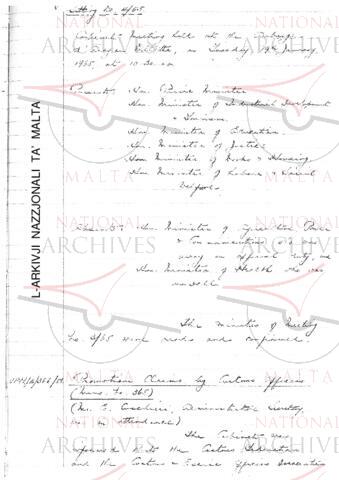 Sitting No. 4/65
Cabinet Meeting held at the Auberge
d'Aragon, Valletta, on Tuesday 19th January,
1965, at 10.30 a.m.
Present: Hon. Prime Minister
Hon. Minister of Industrial Development
& Tourism.
Hon. Minister of Education.
Hon. Minister of Justice
Hon. Minister of Works & Housing.
Hon. Minister of Labour & Social
Welfare
Absent: Hon. Minister of Agriculture Power
& Communications who was
away on official duty, and
Hon. Minister of Health who was
unwell.
The minutes of Meeting
No. 3/65 were read and confirmed.
Promotion Claims by Customs Officers
(Memo. No. 365)
(Mr. Administrative Secretary,
was in attendance)
The Cabinet
the Customs
and the Customs & Excise Officers Association
L-ARKIVJI NAZZJONALI TA' MALTA
NATIONAL
ARCHIVES
MALTA